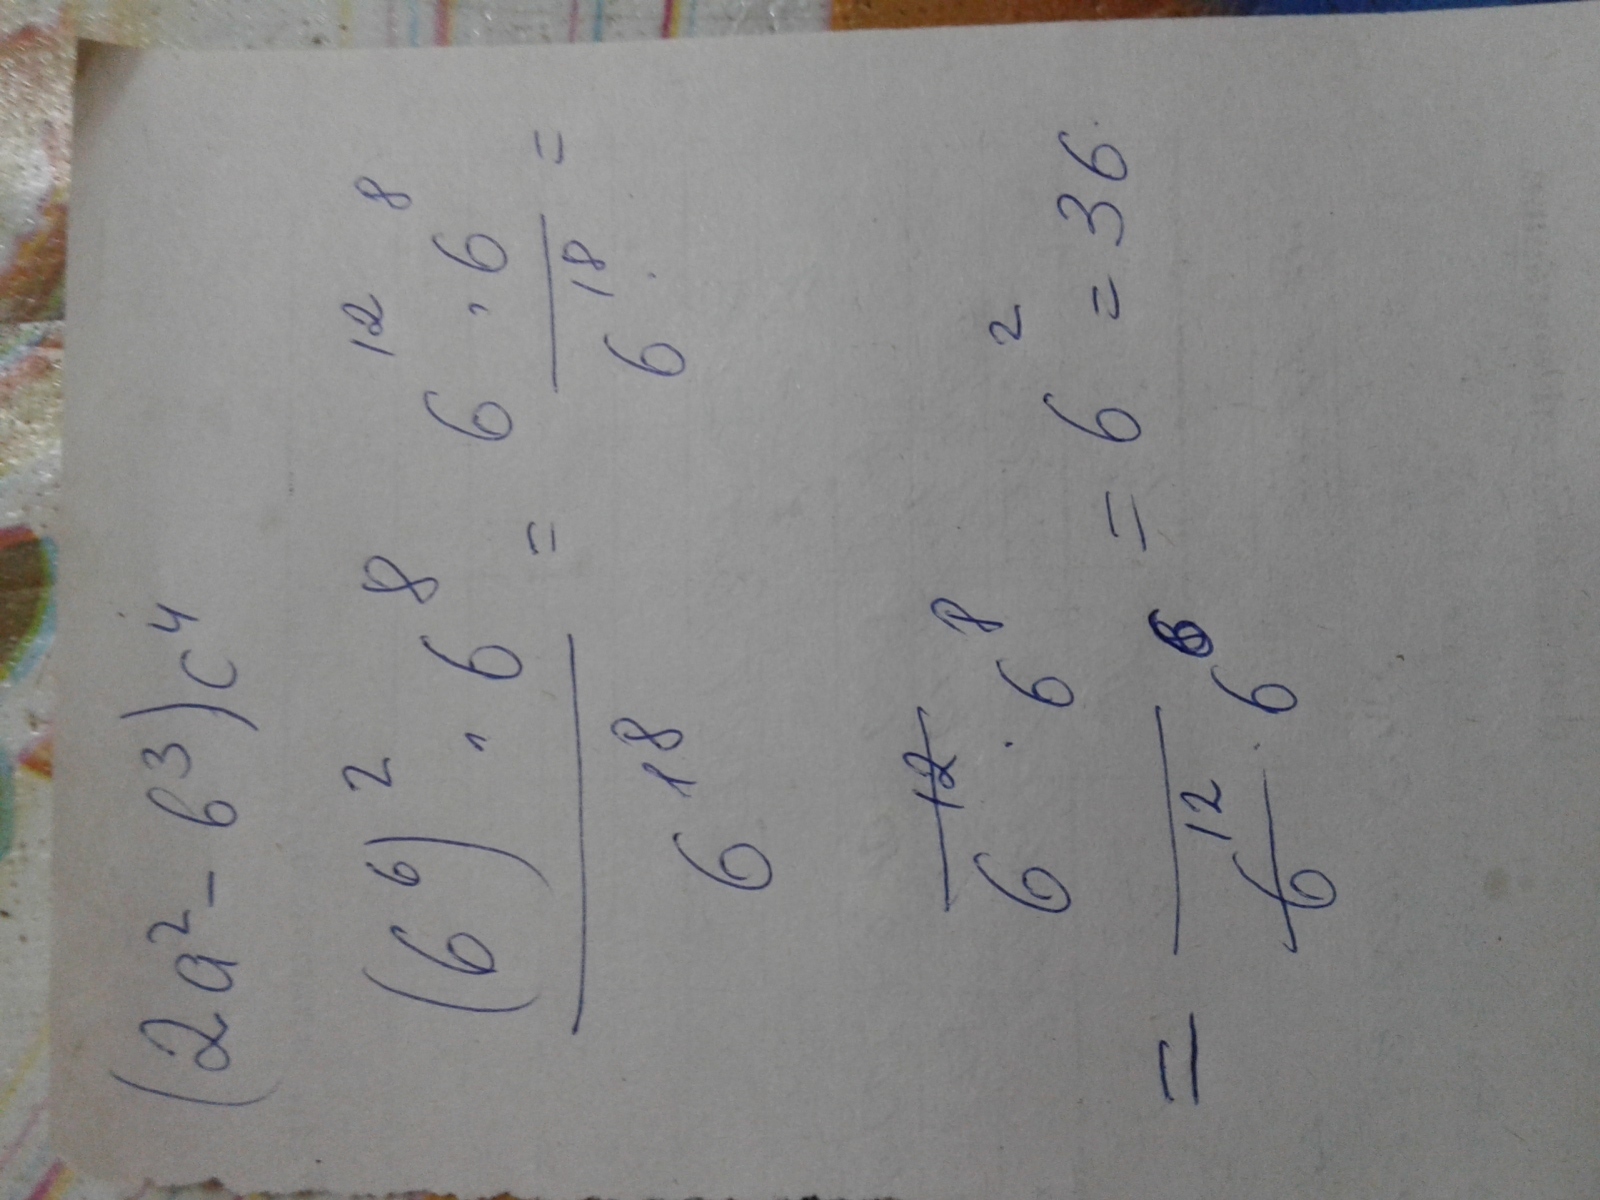 (2a² - b³)c⁴
(6⁶)² · 6⁸ / 6¹⁸ = 6¹² · 6⁸ / 6¹⁸ =
= 6¹² · 6⁸ / 6¹² · 6⁶ = 6² = 36.